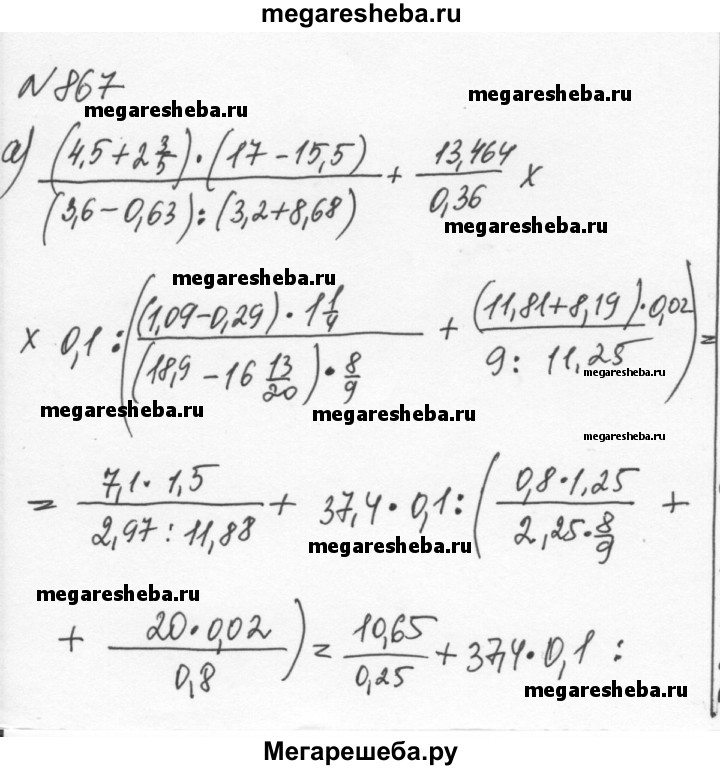 megaresheba.ru
N 867
megaresheba.ru megaresheba.ru
а) (4,5+2 3/5)·(17-15,5) / (3,6-0,63):(3,2+8,68) + 13,464 / 0,36 ×
megaresheba.ru
megaresheba.ru
× 0,1 : ((1,09-0,29)·1 1/4 / (18,9-16 13/20)·8/9 + (11,81+8,19)·0,02 / 9: 11,25) =
megaresheba.ru
megaresheba.ru megaresheba.ru
megaresheba.ru
= 7,1·1,5 / 2,97:11,88 + 37,4·0,1:(0,8·1,25 / 2,25·8/9 +
megaresheba.ru
megaresheba.ru
+ 20·0,02 / 0,8) = 10,65 / 0,25 + 37,4·0,1 :
megaresheba.ru
Мегарешеба.ру